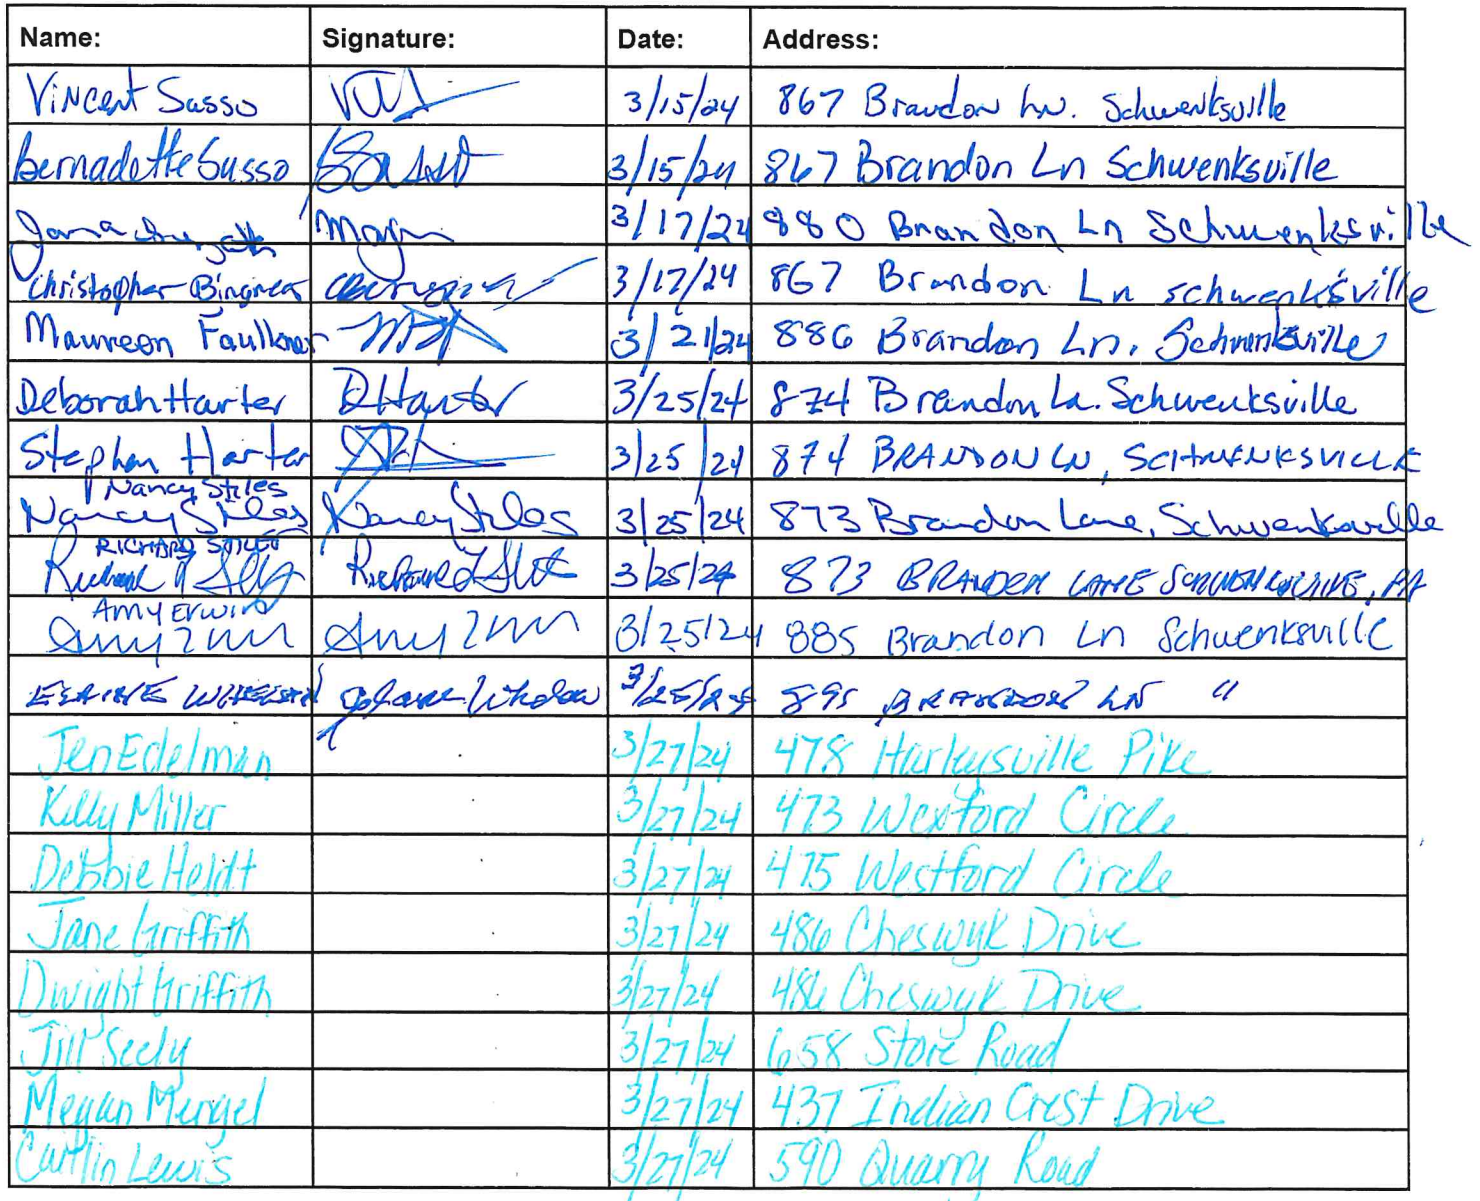 Name: Signature: Date: Address:
Vincent Sasso 3/15/24 867 Brandon Ln. Schwenksville
Bernadette Sasso BSasso 3/15/24 867 Brandon Ln Schwenksville
Jana 3/17/24 880 Brandon Ln Schwenksville
Christopher Bingner 3/17/24 867 Brandon Ln schwenksville
Maureen Faulkner 3/21/24 886 Brandon Ln. Schwenksville
Deborah Harter D Harter 3/25/24 874 Brandon Ln. Schwenksville
Stephen Harter 3/25/24 874 BRANDON LN, SCHWENKSVILLE
Nancy Stiles
Nancy Stiles Nancy Stiles 3/25/24 873 Brandon Lane, Schwenksville
RICHARD STILES
Richard 3/25/24 873 BRANDON LANE SCHWENKSVILLE, PA
AMY ERWIN
3/25/24 885 Brandon Ln Schwenksville
ELAINE 3/25/24 895 BRANDON LN "
Jen Edelman 3/27/24 478 Harleysville Pike
Kelly Miller 3/27/24 473 Wexford Circle
Debbie Heldt 3/27/24 475 Westford Circle
Jane Griffith 3/27/24 486 Cheswyk Drive
Dwight Griffith 3/27/24 486 Cheswyk Drive
Jill Seely 3/27/24 658 Store Road
Megan Mengel 3/27/24 437 Indian Crest Drive
Caitlin Lewis 3/27/24 590 Quarry Road